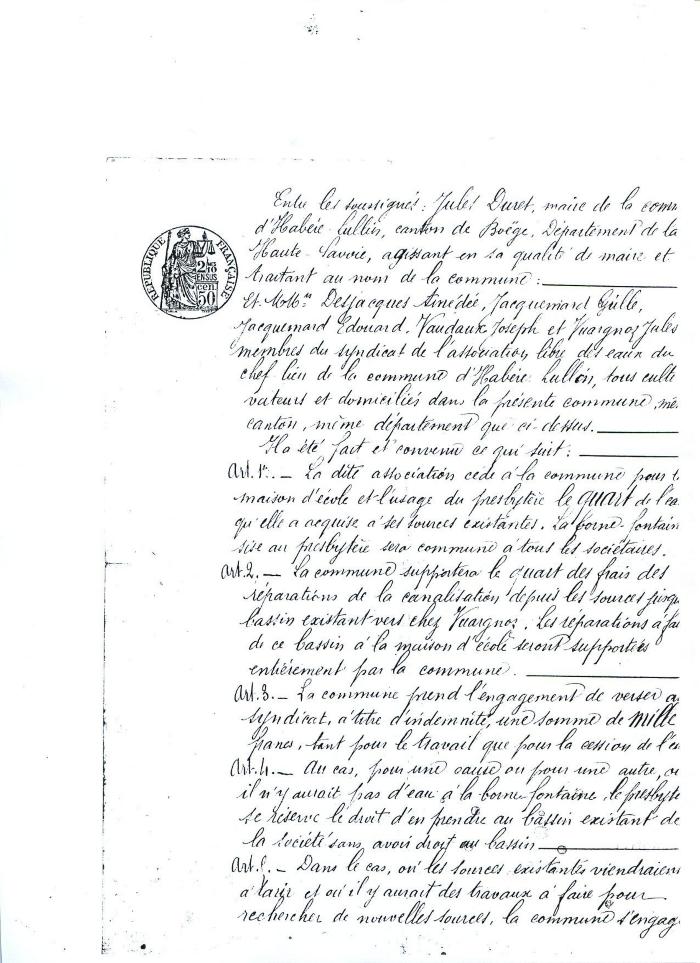 RÉPUBLIQUE FRANÇAISE
2/10
EN SUS
cen.
50
Entre les soussignés : Jules Duret, maire de la comm
d'Habère-Lullin, canton de Boëge, Département de la
Haute-Savoie, agissant en sa qualité de maire et
traitant au nom de la commune :
Et M.M.rs Desjacques Amédée, Jacquemard Gille,
Jacquemard Edouard, Vaudaux Joseph et Vuargnoz Jules
membres du syndicat de l'association libre des eaux du
chef-lieu de la commune d'Habère-Lullin, tous culti
vateurs et domiciliés dans la présente commune, mê
canton, même département que ci-dessus.
Il a été fait et convenu ce qui suit :
Art. 1er. — La dite association cède à la commune pour l
maison d'école et l'usage du presbytère le quart de l'ea
qu'elle a acquise à ses sources existantes. La borne-fontain
sise au presbytère sera commune à tous les sociétaires.
Art. 2. — La commune supportera le quart des frais des
réparations de la canalisation depuis les sources jusqu
bassin existant vers chez Vuargnoz. Les réparations à fai
de ce bassin à la maison d'école seront supportées
entièrement par la commune.
Art. 3. — La commune prend l'engagement de verser a
syndicat, à titre d'indemnité, une somme de mille
francs, tant pour le travail que pour la cession de l'ea
Art. 4. — Au cas, pour une cause ou pour une autre, où
il n'y aurait pas d'eau à la borne-fontaine, le presbytè
se réserve le droit d'en prendre au bassin existant de
la société sans avoir droit au bassin
Art. 5. — Dans le cas, où les sources existantes viendraien
à tarir et où il y aurait des travaux à faire pour
rechercher de nouvelles sources, la commune s'engag